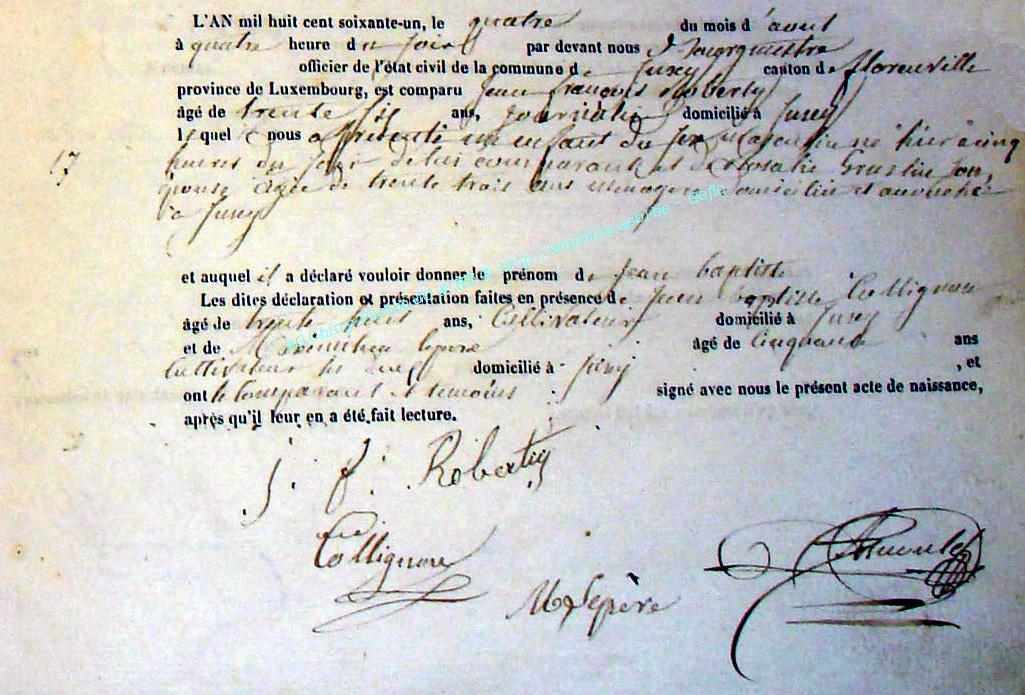 L'AN mil huit cent soixante-un, le quatre du mois d'aout
à quatre heure du soir par devant nous Bourgmestre
officier de l'état civil de la commune de Juzy canton de florenville
province de Luxembourg, est comparu Jean françois Roberty
âgé de trente six ans, journalier domicilié à Juzy
lequel nous a présenté un enfant du sexe masculin né hier à cinq
heures du soir de lui comparant et de Rosalie son
épouse agée de trente trois ans ménagère domiciliée et accouchée
17
à Juzy
et auquel il a déclaré vouloir donner le prénom de Jean baptiste
Les dites déclaration et présentation faites en présence de Jean baptiste Collignon
âgé de trente huit ans, Cultivateur domicilié à Juzy
et de lepère âgé de Cinquante ans
Cultivateur domicilié à Juzy , et
ont le Comparant et témoins signé avec nous le présent acte de naissance,
après qu'il leur en a été fait lecture.
J. f. Roberty
Collignon
M Lepère